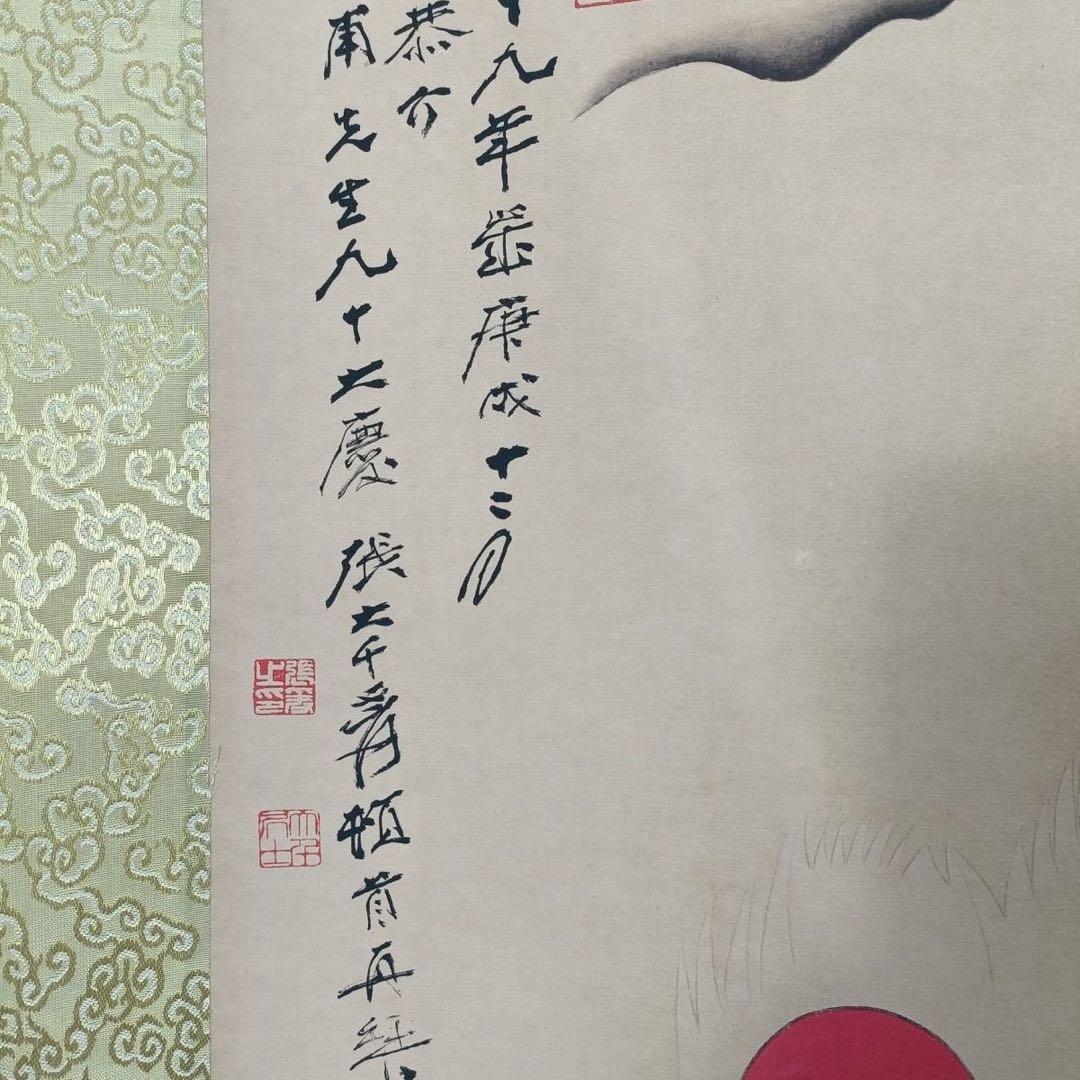 十九年歲庚戌十二月
恭介
甫先生九十大慶 張大千爰頓首再拜
張爰之印
大千居士